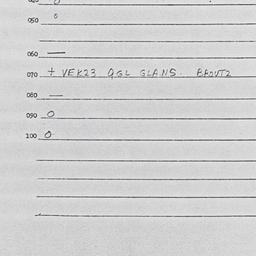 050 o
060 —
070 + VEK23 QGL GLANS. BROUTZ
080 —
090 O
100 O